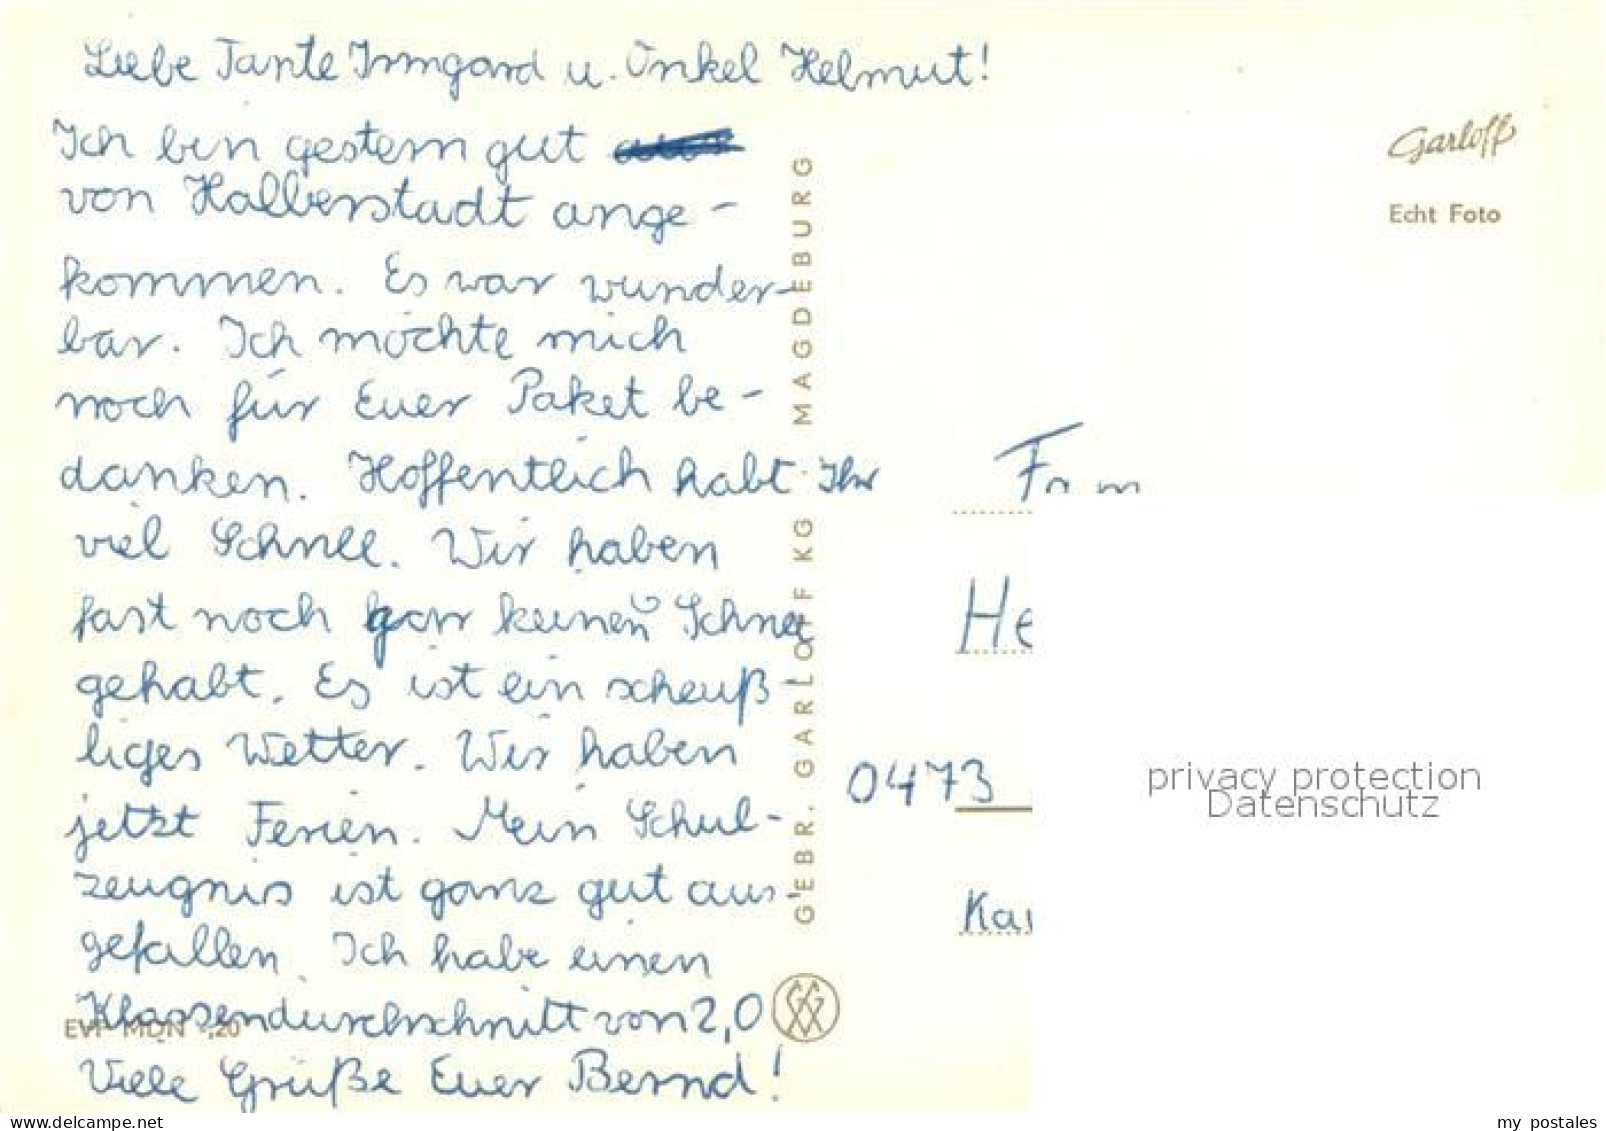 Liebe Tante Irmgard u. Onkel Helmut!
Ich bin gestern gut
von Halberstadt ange-
kommen. Es war wunder-
bar. Ich möchte mich
noch für Euer Paket be-
danken. Hoffentlich habt Ihr
viel Schnee. Wir haben
fast noch gar keinen Schnee
gehabt. Es ist ein scheuß-
liges Wetter. Wir haben
jetzt Ferien. Mein Schul-
zeugnis ist ganz gut aus-
gefallen. Ich habe einen
Klassendurchschnitt von 2,0
Viele Grüße Euer Bernd!
EVP MDN -,20
GEBR. GARLOFF KG MAGDEBURG
Garloff
Echt Foto
Fam
He
0473
Kar
privacy protection
Datenschutz
www.delcampe.net
my_postales